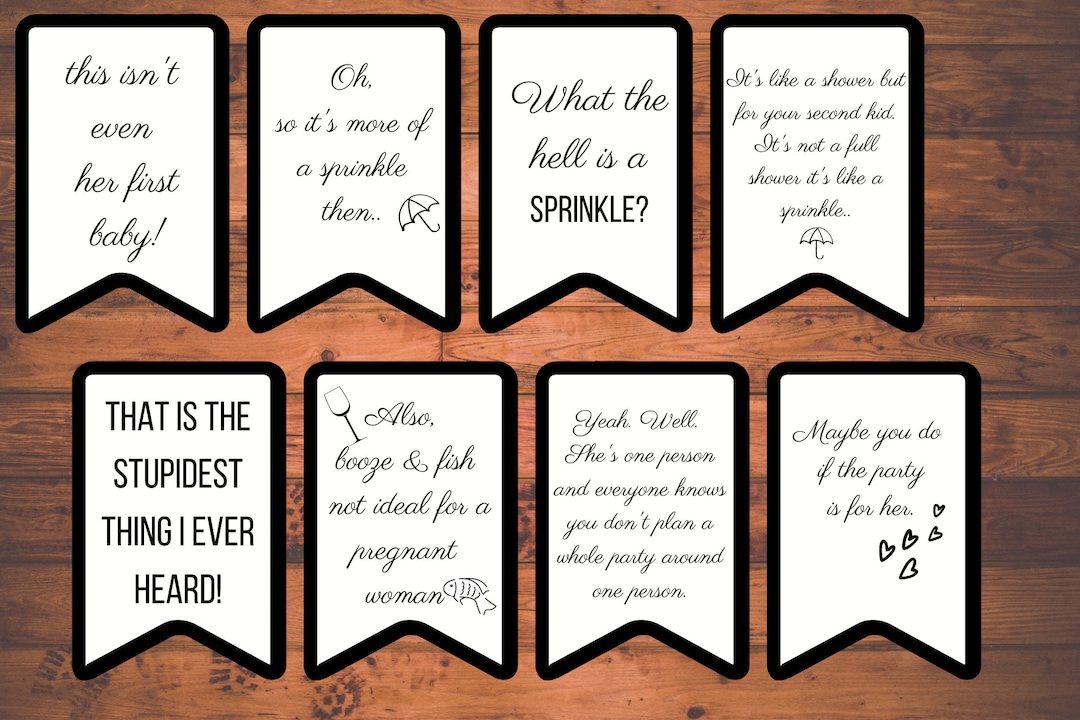 this isn't
even
her first
baby!
Oh,
so it's more of
a sprinkle
then..
What the
hell is a
SPRINKLE?
It's like a shower but
for your second kid.
It's not a full
shower it's like a
sprinkle..
THAT IS THE
STUPIDEST
THING I EVER
HEARD!
Also,
booze & fish
not ideal for a
pregnant
woman
Yeah. Well.
She's one person
and everyone knows
you don't plan a
whole party around
one person.
Maybe you do
if the party
is for her.